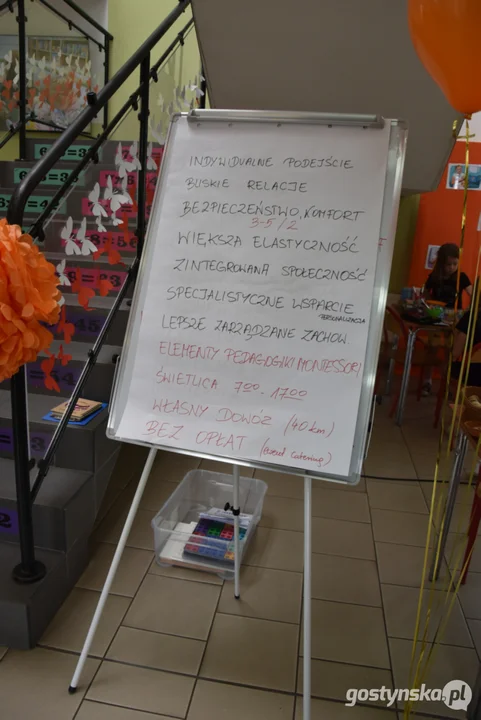 INDYWIDUALNE PODEJŚCIE
BLISKIE RELACJE
BEZPIECZEŃSTWO, KOMFORT
3-5/2
WIĘKSZA ELASTYCZNOŚĆ
ZINTEGROWANA SPOŁECZNOŚĆ
SPECJALISTYCZNE WSPARCIE
PERSONALIZACJA
LEPSZE ZARZĄDZANE ZACHOW.
ELEMENTY PEDAGOGIKI MONTESSORI
ŚWIETLICA 7⁰⁰ - 17⁰⁰
WŁASNY DOWÓZ (40 km)
BEZ OPŁAT (catering)
gostynska.pl